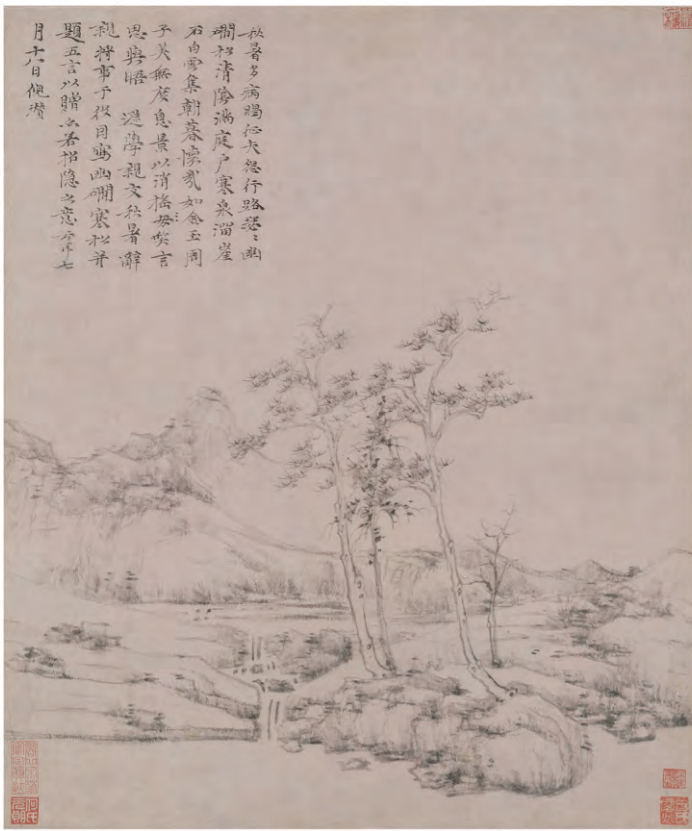 秋暑多病暍征夫怨行路瑟〻幽
澗松清陰滿庭戶寒泉溜崖
石白雲集朝暮懷哉如金玉周
子美無度息景以消搖咲言
思與晤 遜學親友秋暑辭
親將事于役因寫幽澗寒松并
題五言以贈亦若招隱之意七
月十八日倪瓚